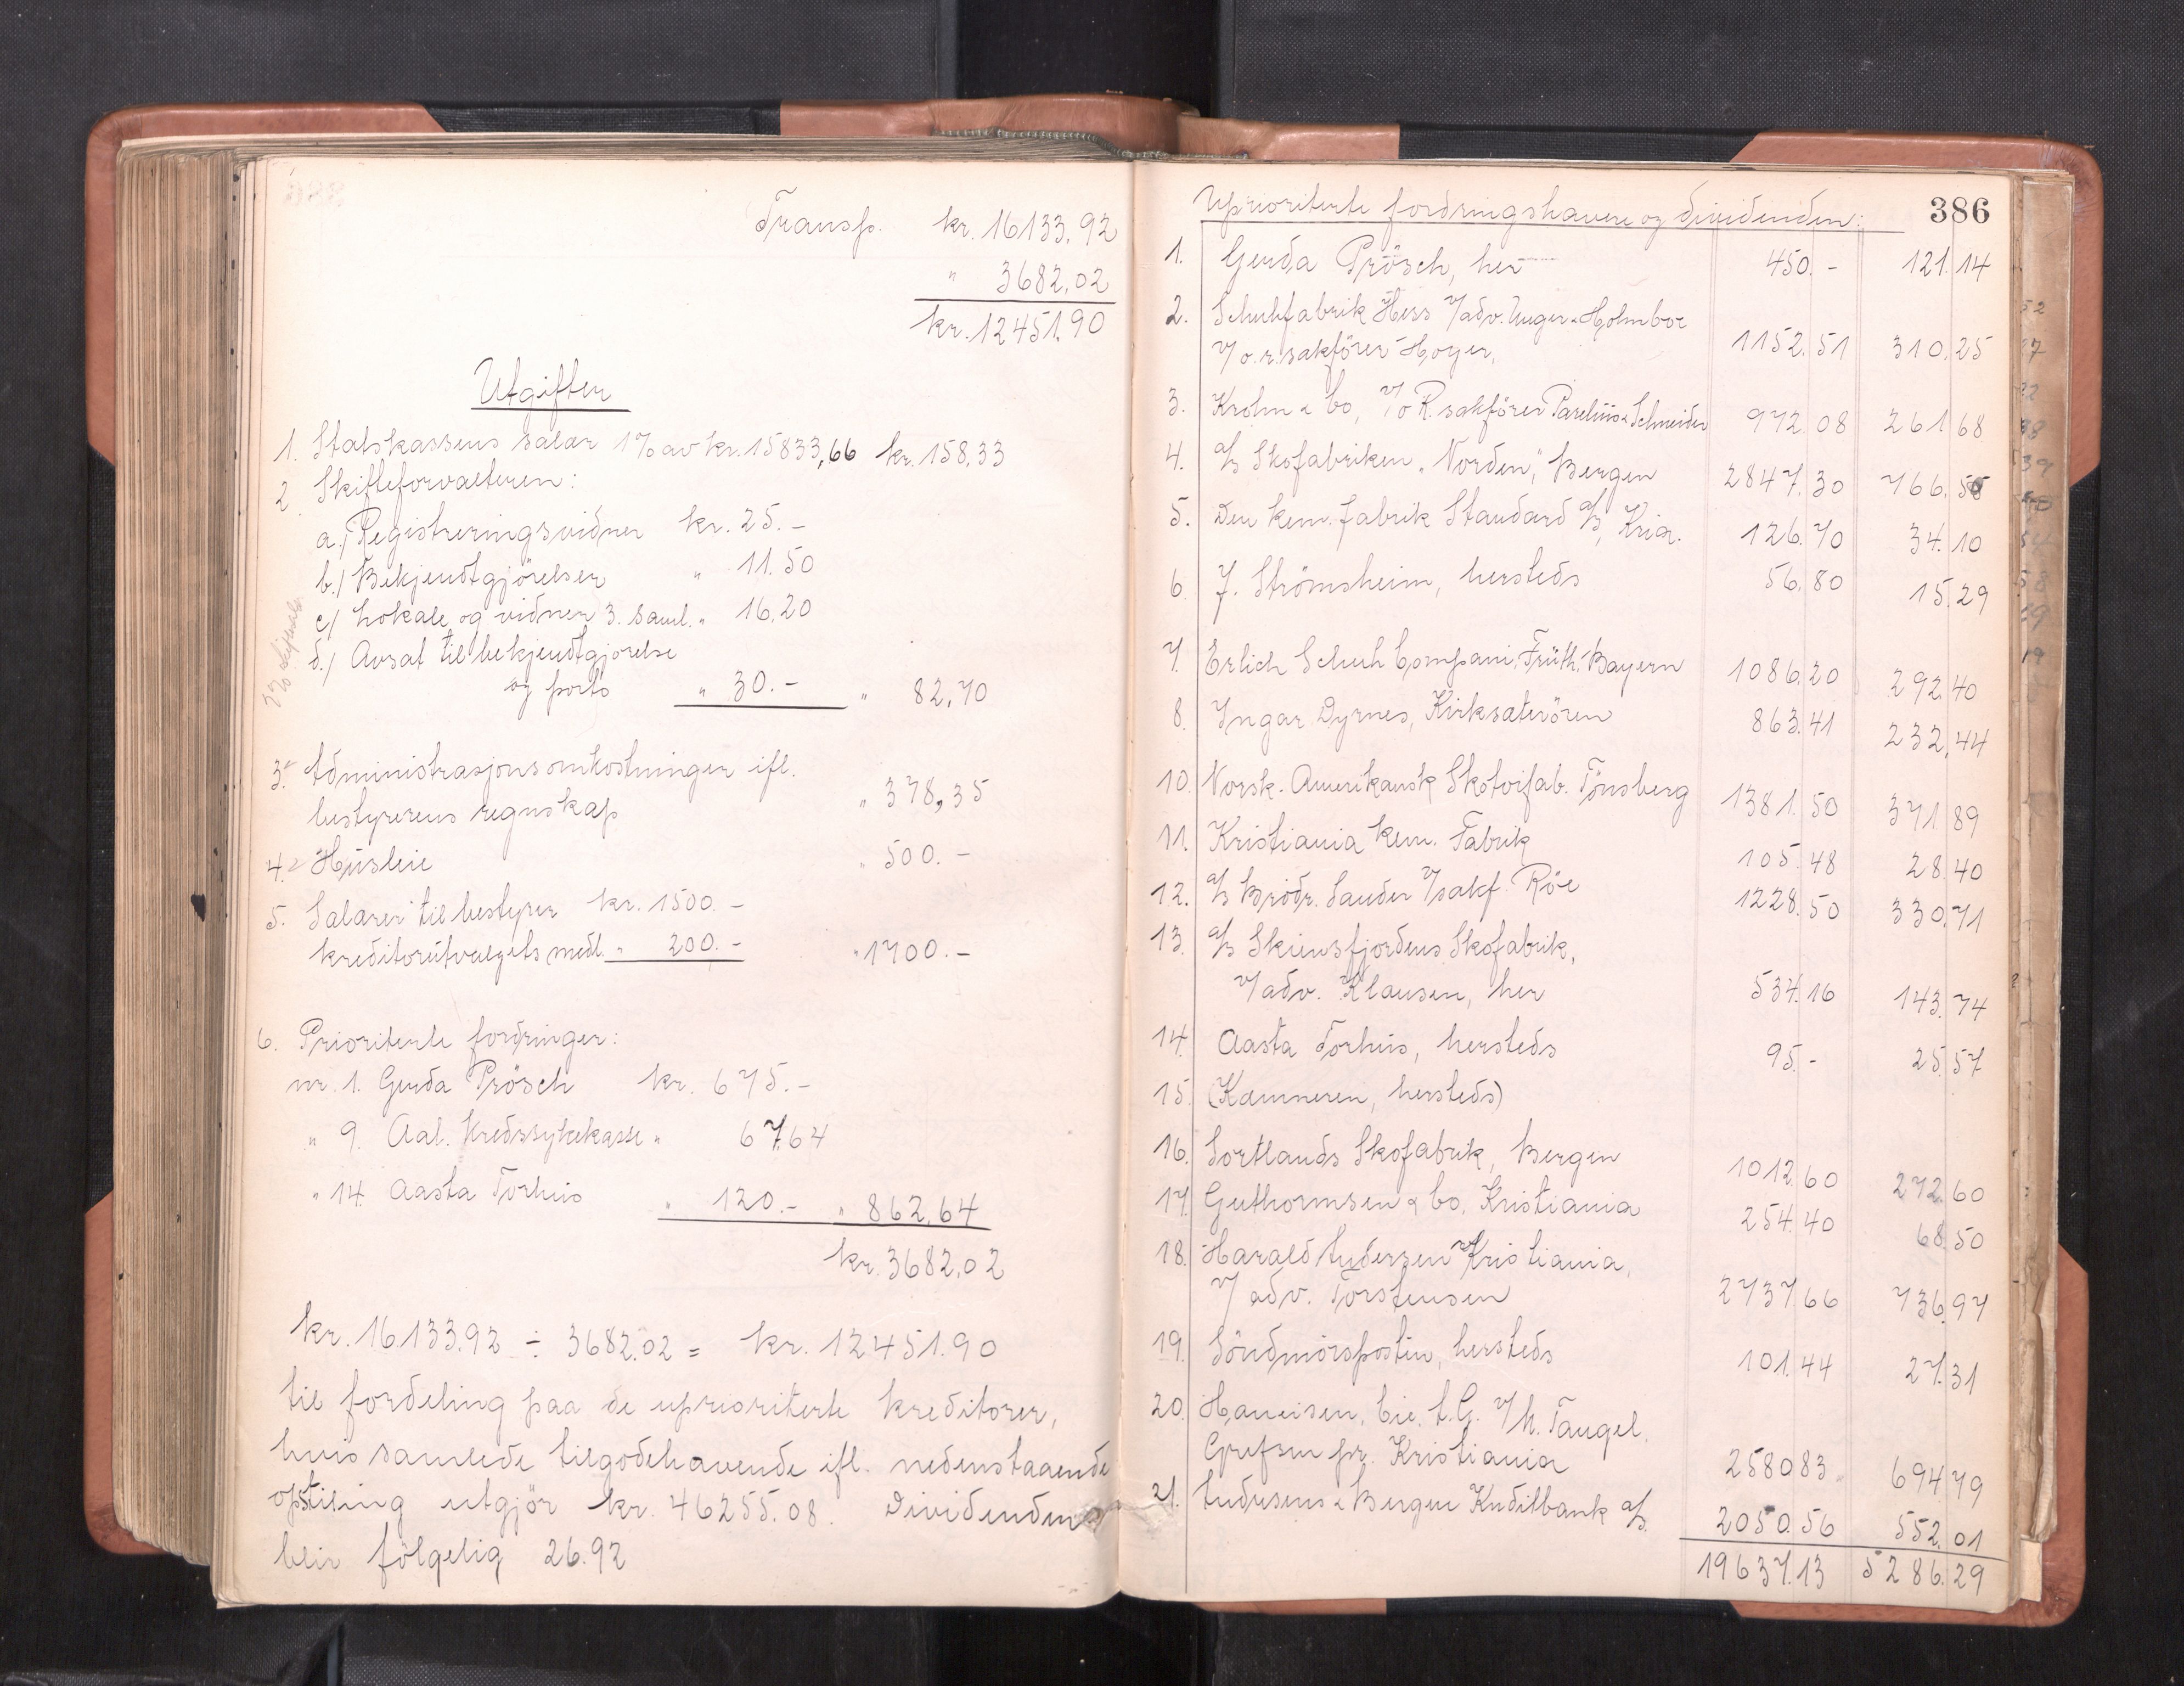 Transp. kr. 16133,92
" 3682,02
kr. 12451,90
Utgifter
1. Statskassens salær 1% av kr. 15833,66 kr. 158,33
2. Skifteforvalteren:
a./ Registreringsvidner kr. 25.-
b./ Bekjendtgjörelser " 11.50
c/ Lokale og vidner 3. saml. " 16,20
d./ Avsat til bekjendtgjörelse
og porto " 30.- " 82,70
3. Administrasjonsomkostninger ifl.
bestyrerens regnskap " 378,35
4. Husleie " 500.-
5. Salærer til bestyrer kr. 1500.-
kreditorutvalgets medl. " 200.- " 1700.-
6. Prioriterte fordringer:
nr. 1. Gerda Prösch kr. 675.-
" 9. Aal. Kredssykekasse " 67.64
" 14. Aasta Torhus " 120.- " 862,64
kr. 3682,02
kr. 16133.92 ÷ 3682.02 = kr. 12451.90
til fordeling paa de uprioriterte kreditorer,
hvis samlede tilgodehavende ifl. nedenstaaende
opstilling utgjör kr. 46255.08. Dividenden
blir fölgelig 26.92
386
Uprioriterte fordringshavere og dividenden:
1. Gerda Prösch, her 450.- 121.14
2. Schuhfabrik Hess v/adv. Unger & Holmboe
v/o.r.sakförer Hoyer, 1152.51 310.25
3. Krohn & Co, v/o R. sakförer Parelius & Schneider 972.08 261.68
4. a/s Skofabriken "Norden", Bergen 2847.30 766.50
5. Den kem. fabrik Standard a/s, Kria. 126.70 34.10
6. J. Strömsheim, hersteds 56.80 15.29
7. Erlich Schuh Compani, Früth, Bayern 1086.20 292.40
8. Yngar Dyrnes, Kirksæterören 863.41 232.44
10. Norsk. Amerikansk Skotöifab. Tönsberg 1381.50 371.89
11. Kristiania kem. Fabrik 105.48 28.40
12. a/s Brödr. Sander v/sakf. Röe 1228.50 330.71
13. a/s Skiensfjordens Skofabrik,
v/adv. Klausen, her 534.16 143.74
14. Aasta Torhus, hersteds 95.- 25.57
15. (Kæmneren, hersteds)
16. Sortlands Skofabrik, Bergen 1012.60 272.60
17. Guthormsen & Co, Kristiania 254.40 68.50
18. Harald Andersen Kristiania,
v/ adv. Torstensen 2737.66 736.97
19. Söndmörsposten, hersteds 101.44 27.31
20. Haneisen, Cie. t.G. v/ h. Tangel.
Grefsen pr. Kristiania 2580.83 694.79
21. Andresens & Bergen Kreditbank a/s. 2050.56 552.01
19637.13 5286.29